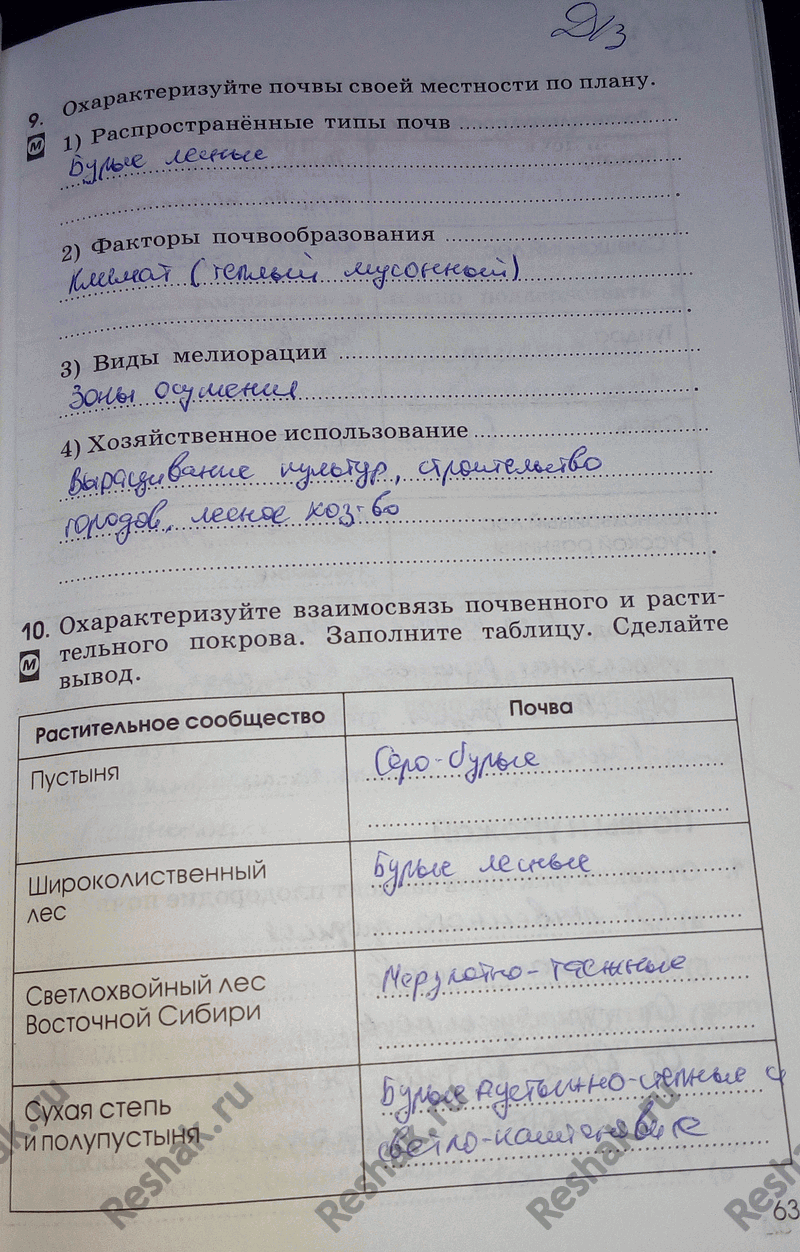 Д/з
9. Охарактеризуйте почвы своей местности по плану.
М 1) Распространённые типы почв
Бурые лесные
2) Факторы почвообразования
Климат (теплый муссонный)
3) Виды мелиорации
Зоны осушения
4) Хозяйственное использование
Выращивание культур, строительство
городов, лесное хоз-во
10. Охарактеризуйте взаимосвязь почвенного и расти-
М тельного покрова. Заполните таблицу. Сделайте
вывод.
Растительное сообщество Почва
Пустыня Серо-бурые
Широколиственный Бурые лесные
лес
Светлохвойный лес Мерзлотно-таежные
Восточной Сибири
Сухая степь Бурые пустынно-степные и
и полупустыня светло-каштановые
63
Reshak.ru
Reshak.ru
Reshak.ru